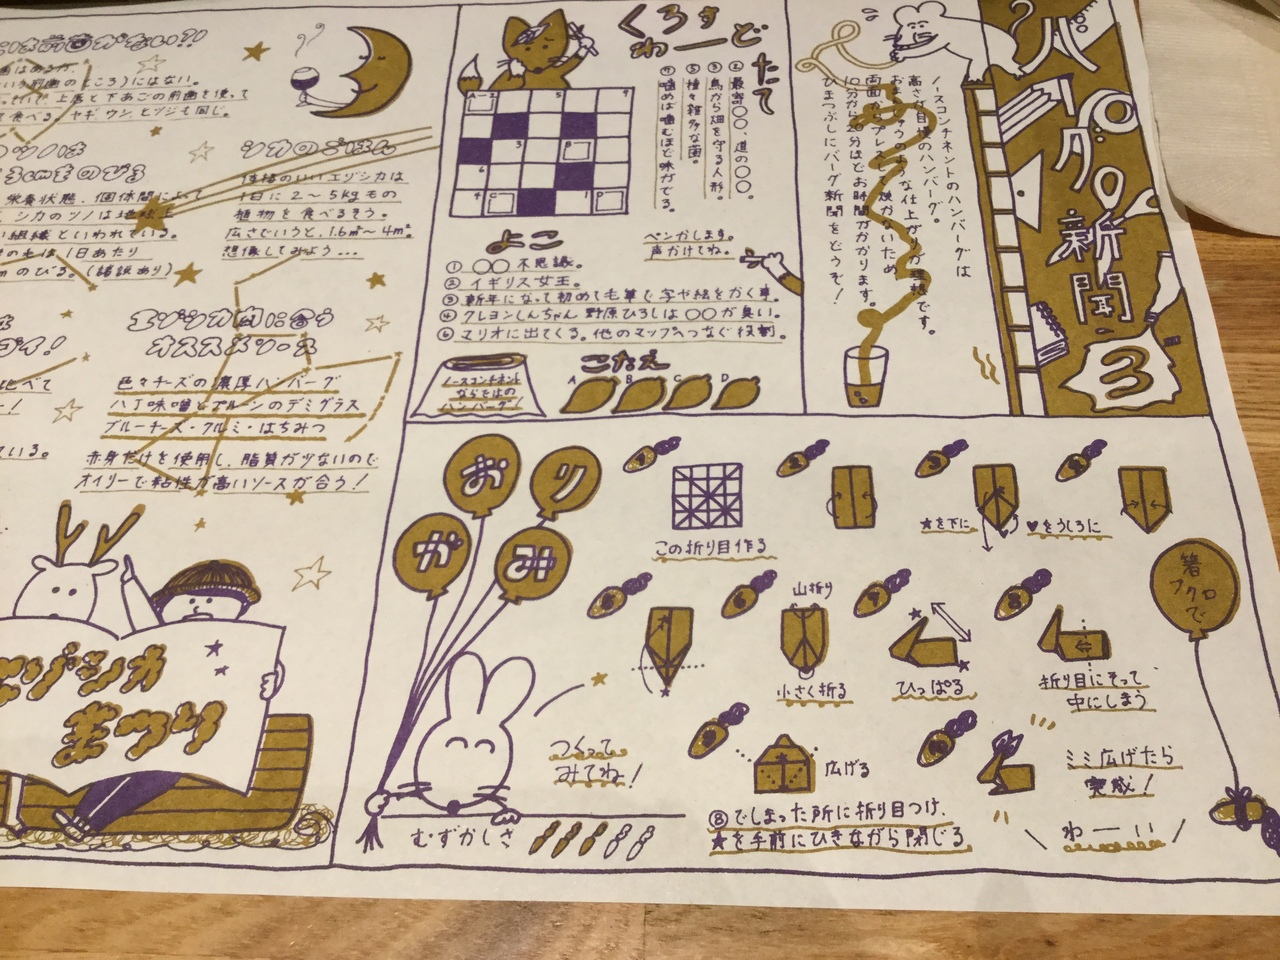 バーグの新聞
3
ノースコンチネントのハンバーグは
高さが自慢のハンバーグ。
おまんじゅうのような仕上がりが理想です。
両面からプレスして焼かないため
10分から20分ほどお時間がかかります。
ひまつぶしにバーグ新聞をどうぞ!
くろすわーど
たて
② 最寄○○、道の○○。
③ 鳥から畑を守る人形。
⑤ 種々雑多な菌。
⑦ 噛めば噛むほど味がでる。
ペンかします。
声かけてね。
よこ
① ○○不思議。
② イギリス女王。
③ 新年になって初めて毛筆で字や絵をかく事。
④ クレヨンしんちゃん 野原ひろしは○○が臭い。
⑥ マリオに出てくる。他のマップへつなぐ役割。
こたえ
A B C D
ノースコンチネント
ならではの
ハンバーグ!
前歯がない?!
のところにはない。
上唇と下あごの前歯を使って
食べる。ヤギ、ウシ、ヒツジも同じ。
ツノは
cmものびる
栄養状態、個体間によって
シカのツノは地球上
組織といわれている。
1日あたり
mのびる。(諸説あり)
シカのごはん
体格のいいエゾシカは
1日に2〜5kgもの
植物を食べるそう。
広さでいうと、1.6㎡〜4㎡。
想像してみよう…
エゾシカ肉に合う
オススメソース
色々チーズの濃厚ハンバーグ
八丁味噌とプルーンのデミグラス
ブルーチーズ・クルミ・はちみつ
赤身だけを使用し、脂質が少ないので
オイリーで粘性が高いソースが合う!
イ!
比べて
いる。
エゾシカ
まつり
おりがみ
箸
フクロ
で
1
この折り目作る
2
3
★を下に
♥をうしろに
4
5
6
山折り
小さく折る
7
ひっぱる
8
折り目にそって
中にしまう
9
広げる
⑧でしまった所に折り目つけ、
★を手前にひきながら閉じる
10
ミミ広げたら
完成!
わーい
つくって
みてね!
むずかしさ